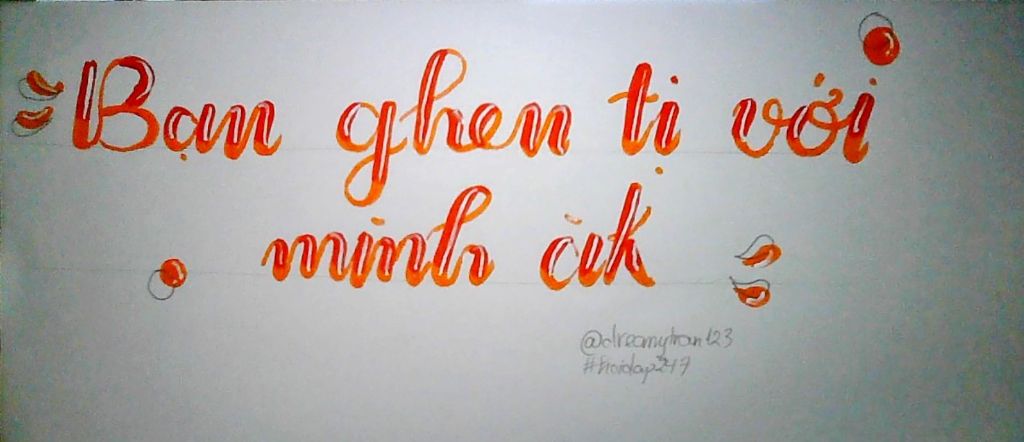 Bạn ghen tị với
mình àk
@dreamytran123
#hoidap247